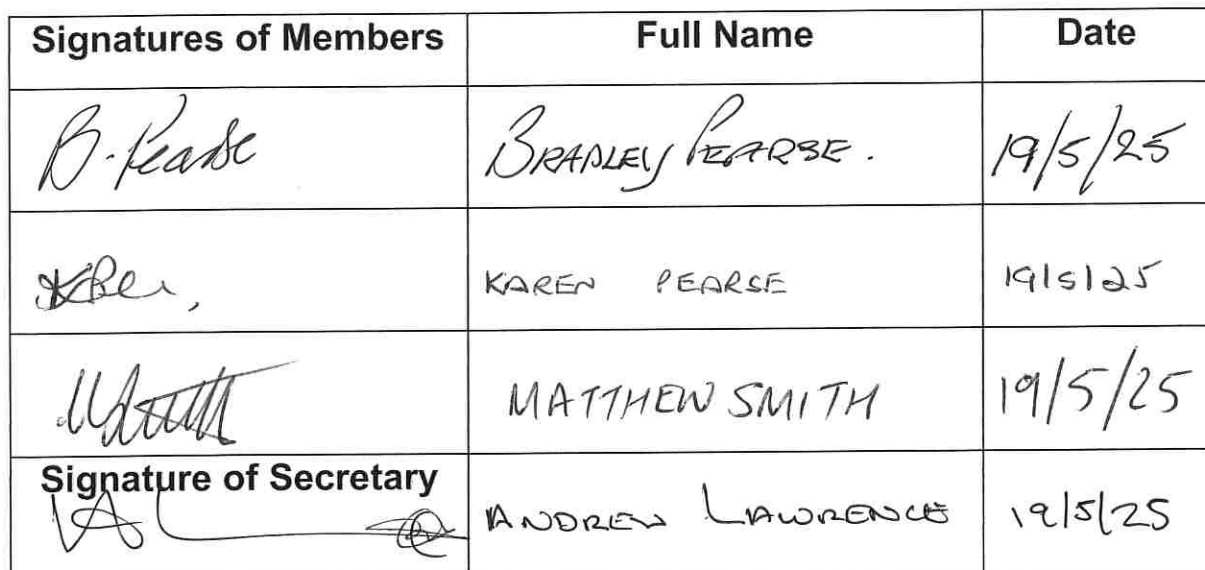 Signatures of Members Full Name Date
B. Pearse BRADLEY PEARSE. 19/5/25
KAREN PEARSE 19/5/25
MATTHEW SMITH 19/5/25
Signature of Secretary
ANDREW LAWRENCE 19/5/25